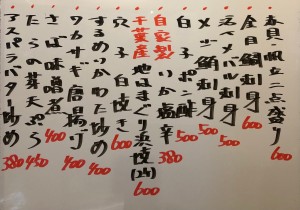 春貝・帆立二点盛り 600
金目鯛刺身 600
活〆メバル刺身 500
メジ鮪刺身 500
白子ポン酢 500
自家製いか塩辛 380
穴子白焼き 600
千葉産地はまぐり浜焼(2ケ) 600
するめいかわた炒め 400
ワカサギ唐揚げ 400
さば味噌煮 400
たらの芽天ぷら 450
アスパラバター炒め 380